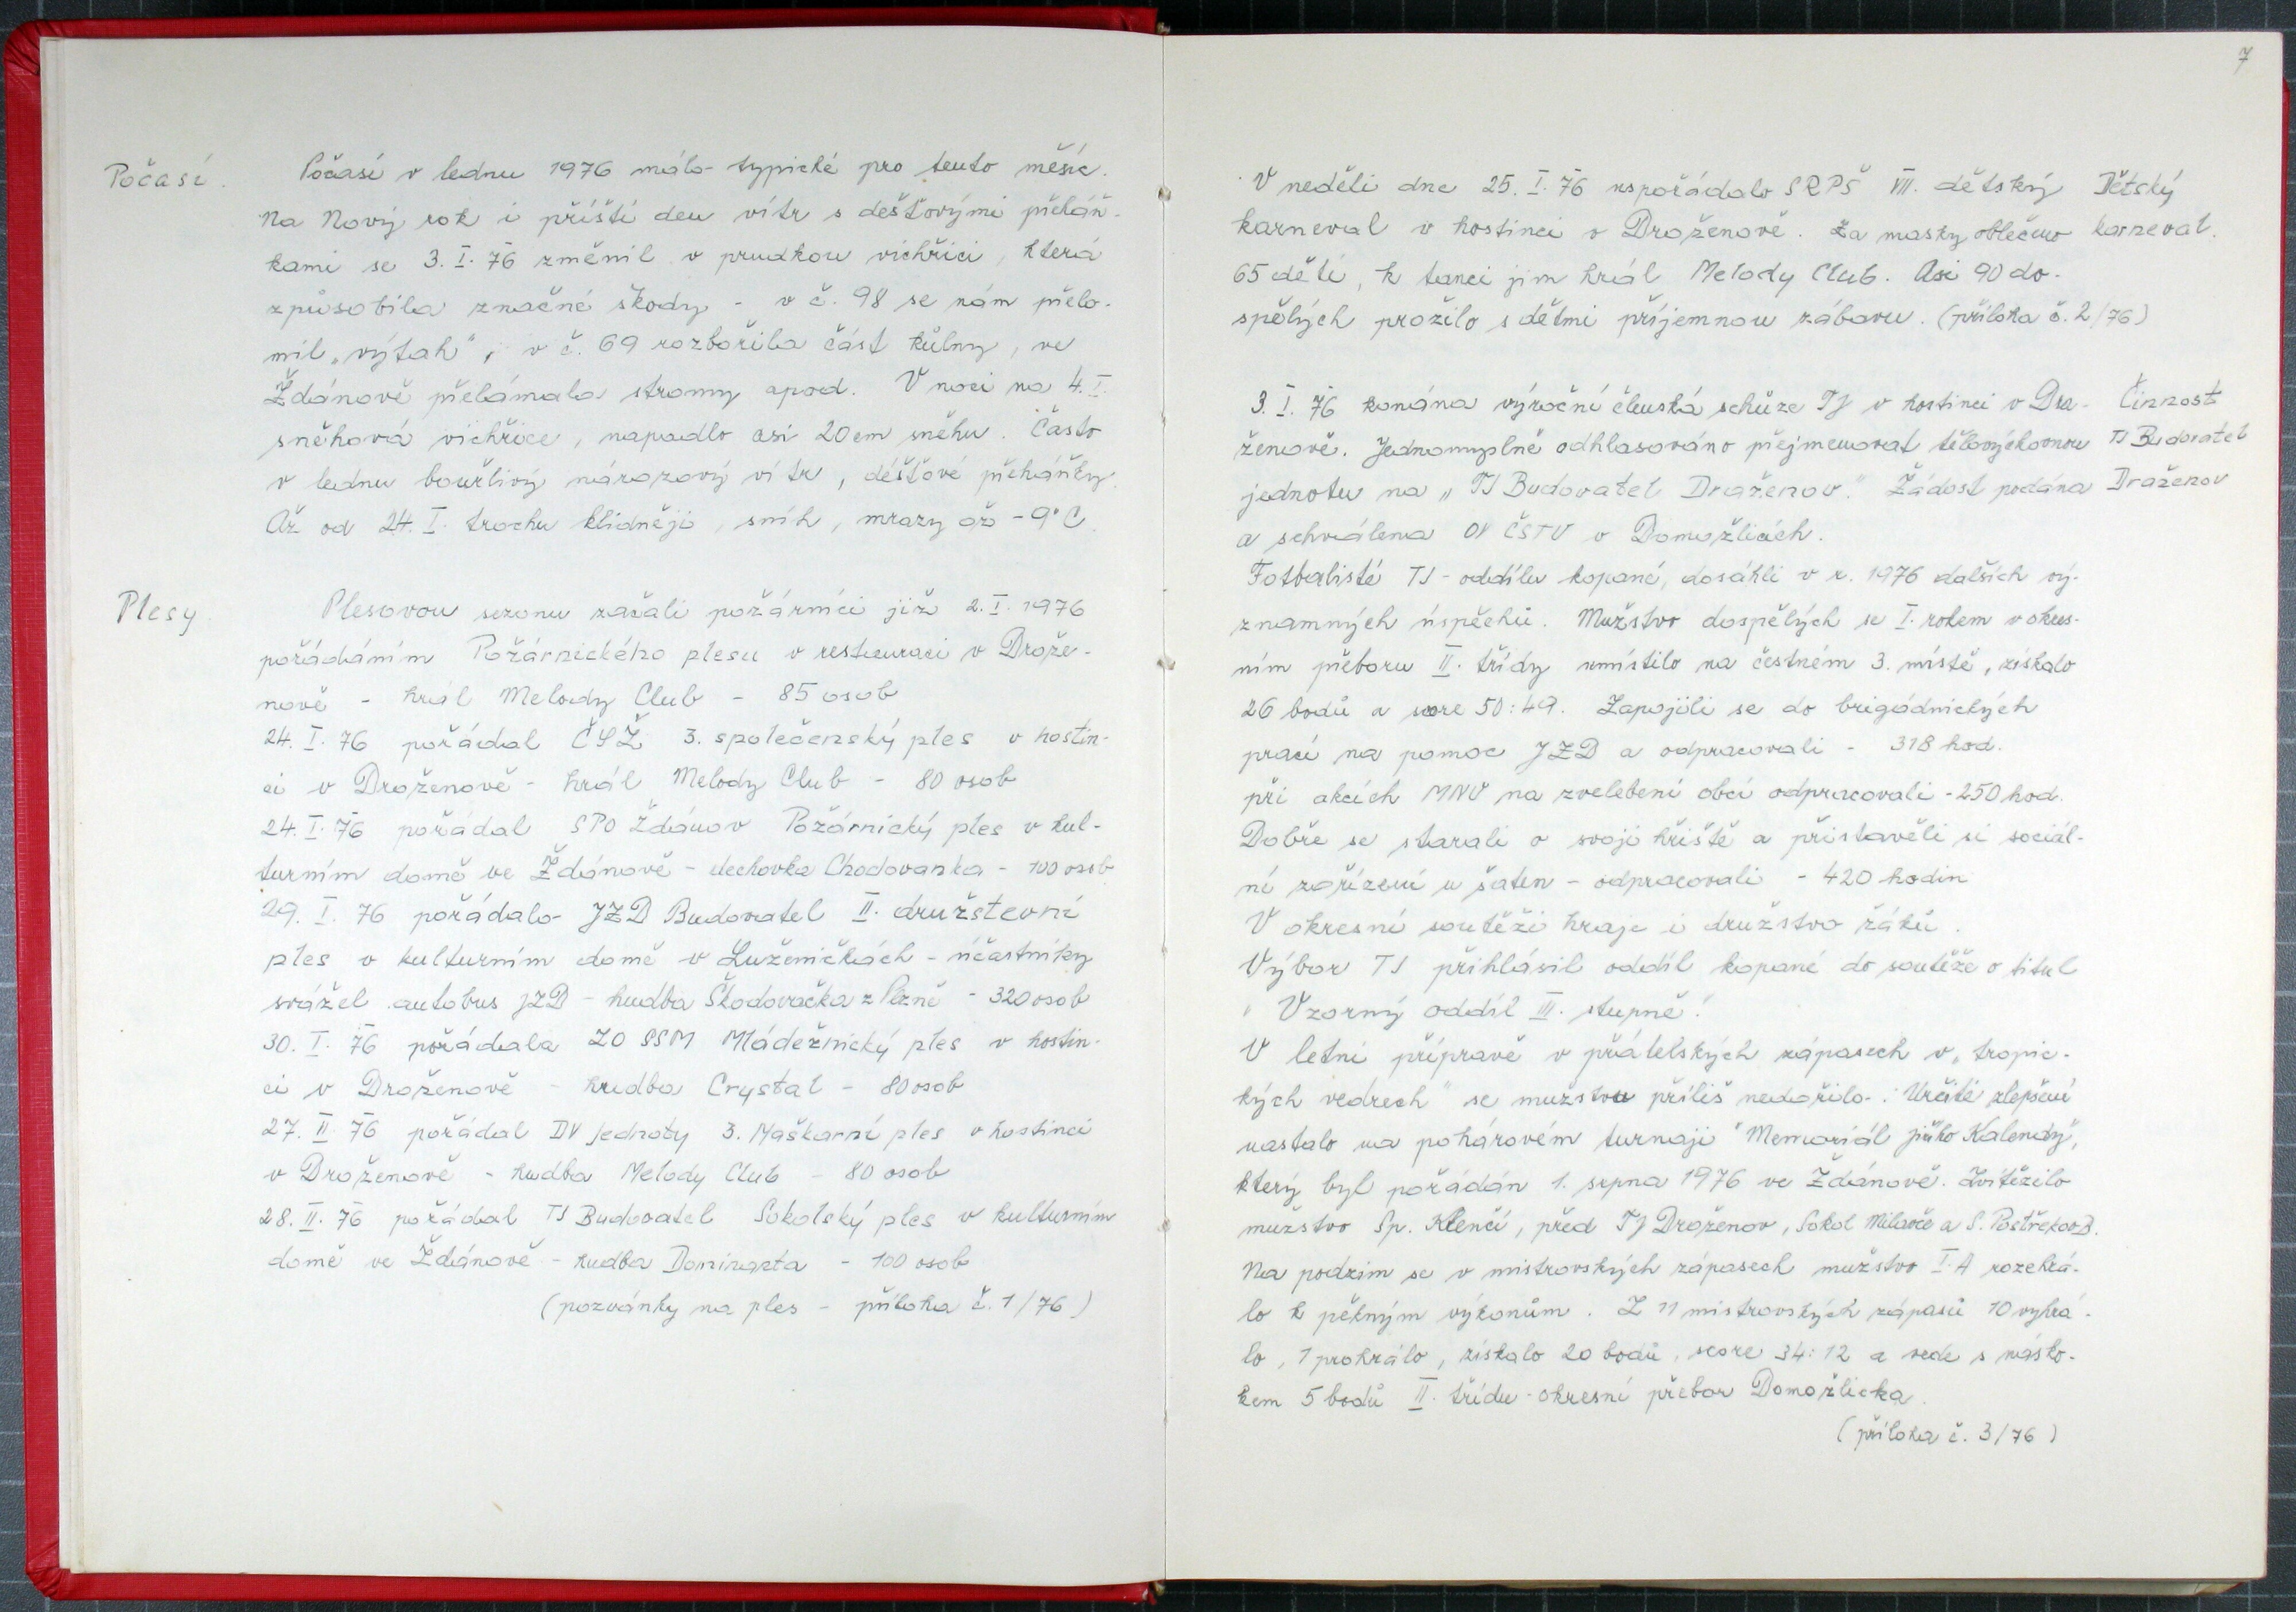 Počasí.
Počasí v lednu 1976 málo typické pro tento měsíc.
Na Nový rok i příští den vítr s dešťovými přeháň-
kami se 3. I. 76 změnil v prudkou vichřici, která
způsobila značné škody - v č. 98 se nám přelo-
mil „výtah", v č. 69 rozbořila část kůlny, ve
Ždánově přelámala stromy apod. V noci na 4. I.
sněhová vichřice, napadlo asi 20 cm sněhu. Často
v lednu bouřlivý nárazový vítr, déšťové přeháňky.
Až od 24. I. trochu klidněji, sníh, mrazy až -9°C.
Plesy
Plesovou sezonu začali požárníci již 2. I. 1976
pořádáním Požárnického plesu v restauraci v Draže-
nově - hrál Melody Club - 85 osob
24. I. 76 pořádal ČSŽ 3. společenský ples v hostin-
ci v Draženově - hrál Melody Club - 80 osob
24. I. 76 pořádal SPO Ždánov Požárnický ples v kul-
turním domě ve Ždánově - dechovka Chodovanka - 100 osob
29. I. 76 pořádalo JZD Budovatel II. družstevní
ples v kulturním domě v Luženičkách - účastníky
svážel autobus JZD - hudba Škodovačka z Plzně - 320 osob
30. I. 76 pořádala ZO SSM Mládežnický ples v hostin-
ci v Draženově - hudba Crystal - 80 osob
27. II. 76 pořádal DV Jednoty 3. Maškarní ples v hostinci
v Draženově - hudba Melody Club - 80 osob
28. II. 76 pořádal TJ Budovatel Sokolský ples v kulturním
domě ve Ždánově - hudba Dominanta - 100 osob
(pozvánky na ples - příloha č. 1/76)
7
V neděli dne 25. I. 76 uspořádalo SRPŠ VII. dětský
Dětský
karneval v hostinci v Draženově. Za masky oblečeno
karneval.
65 dětí, k tanci jim hrál Melody Club. Asi 90 do-
spělých prožilo s dětmi příjemnou zábavu. (příloha č. 2/76)
3. I. 76 konána výroční členská schůze TJ v hostinci v Dra-
Činnost
ženově. Jednomyslně odhlasováno přejmenovat tělovýchovnou
TJ Budovatel
jednotu na „TJ Budovatel Draženov." Žádost podána
Draženov
a schválena OV ČSTV v Domažlicích.
Fotbalisté TJ - oddílu kopané, dosáhli v r. 1976 dalších vý-
znamných úspěchů. Mužstvo dospělých se I. rokem v okres-
ním přeboru II. třídy umístilo na čestném 3. místě, získalo
26 bodů a score 50:49. Zapojili se do brigádnických
prací na pomoc JZD a odpracovali - 318 hod.
při akcích MNV na zvelebení obcí odpracovali - 250 hod.
Dobře se starali o svoji hřiště a přistavěli si sociál-
ní zařízení u šaten - odpracovali - 420 hodin
V okresní soutěži hraje i družstvo žáků.
Výbor TJ přihlásil oddíl kopané do soutěže o titul
„ Vzorný oddíl III. stupně."
V letní přípravě v přátelských zápasech v „tropic-
kých vedrech" se mužstvu příliš nedařilo. Určité zlepšení
nastalo na pohárovém turnaji "Memoriál Jiřího Kalendy",
který byl pořádán 1. srpna 1976 ve Ždánově. Zvítězilo
mužstvo Sp. Klenčí, před TJ Draženov, Sokol Milavče a S. Postřekov B.
Na podzim se v mistrovských zápasech mužstvo I. A rozehrá-
lo k pěkným výkonům. Z 11 mistrovských zápasů 10 vyhrá-
lo, 1 prohrálo, získalo 20 bodů, score 34:12 a vede s násko-
kem 5 bodů II. třídu - okresní přebor Domažlicka.
(příloha č. 3/76)